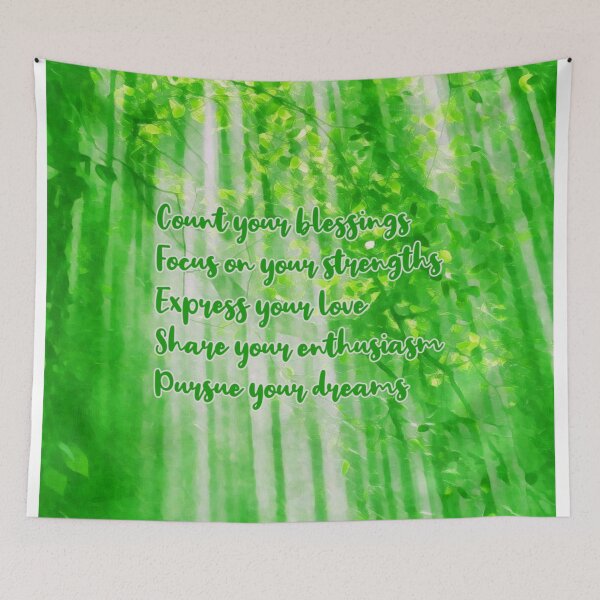 Count your blessings
Focus on your strengths
Express your love
Share your enthusiasm
Pursue your dreams